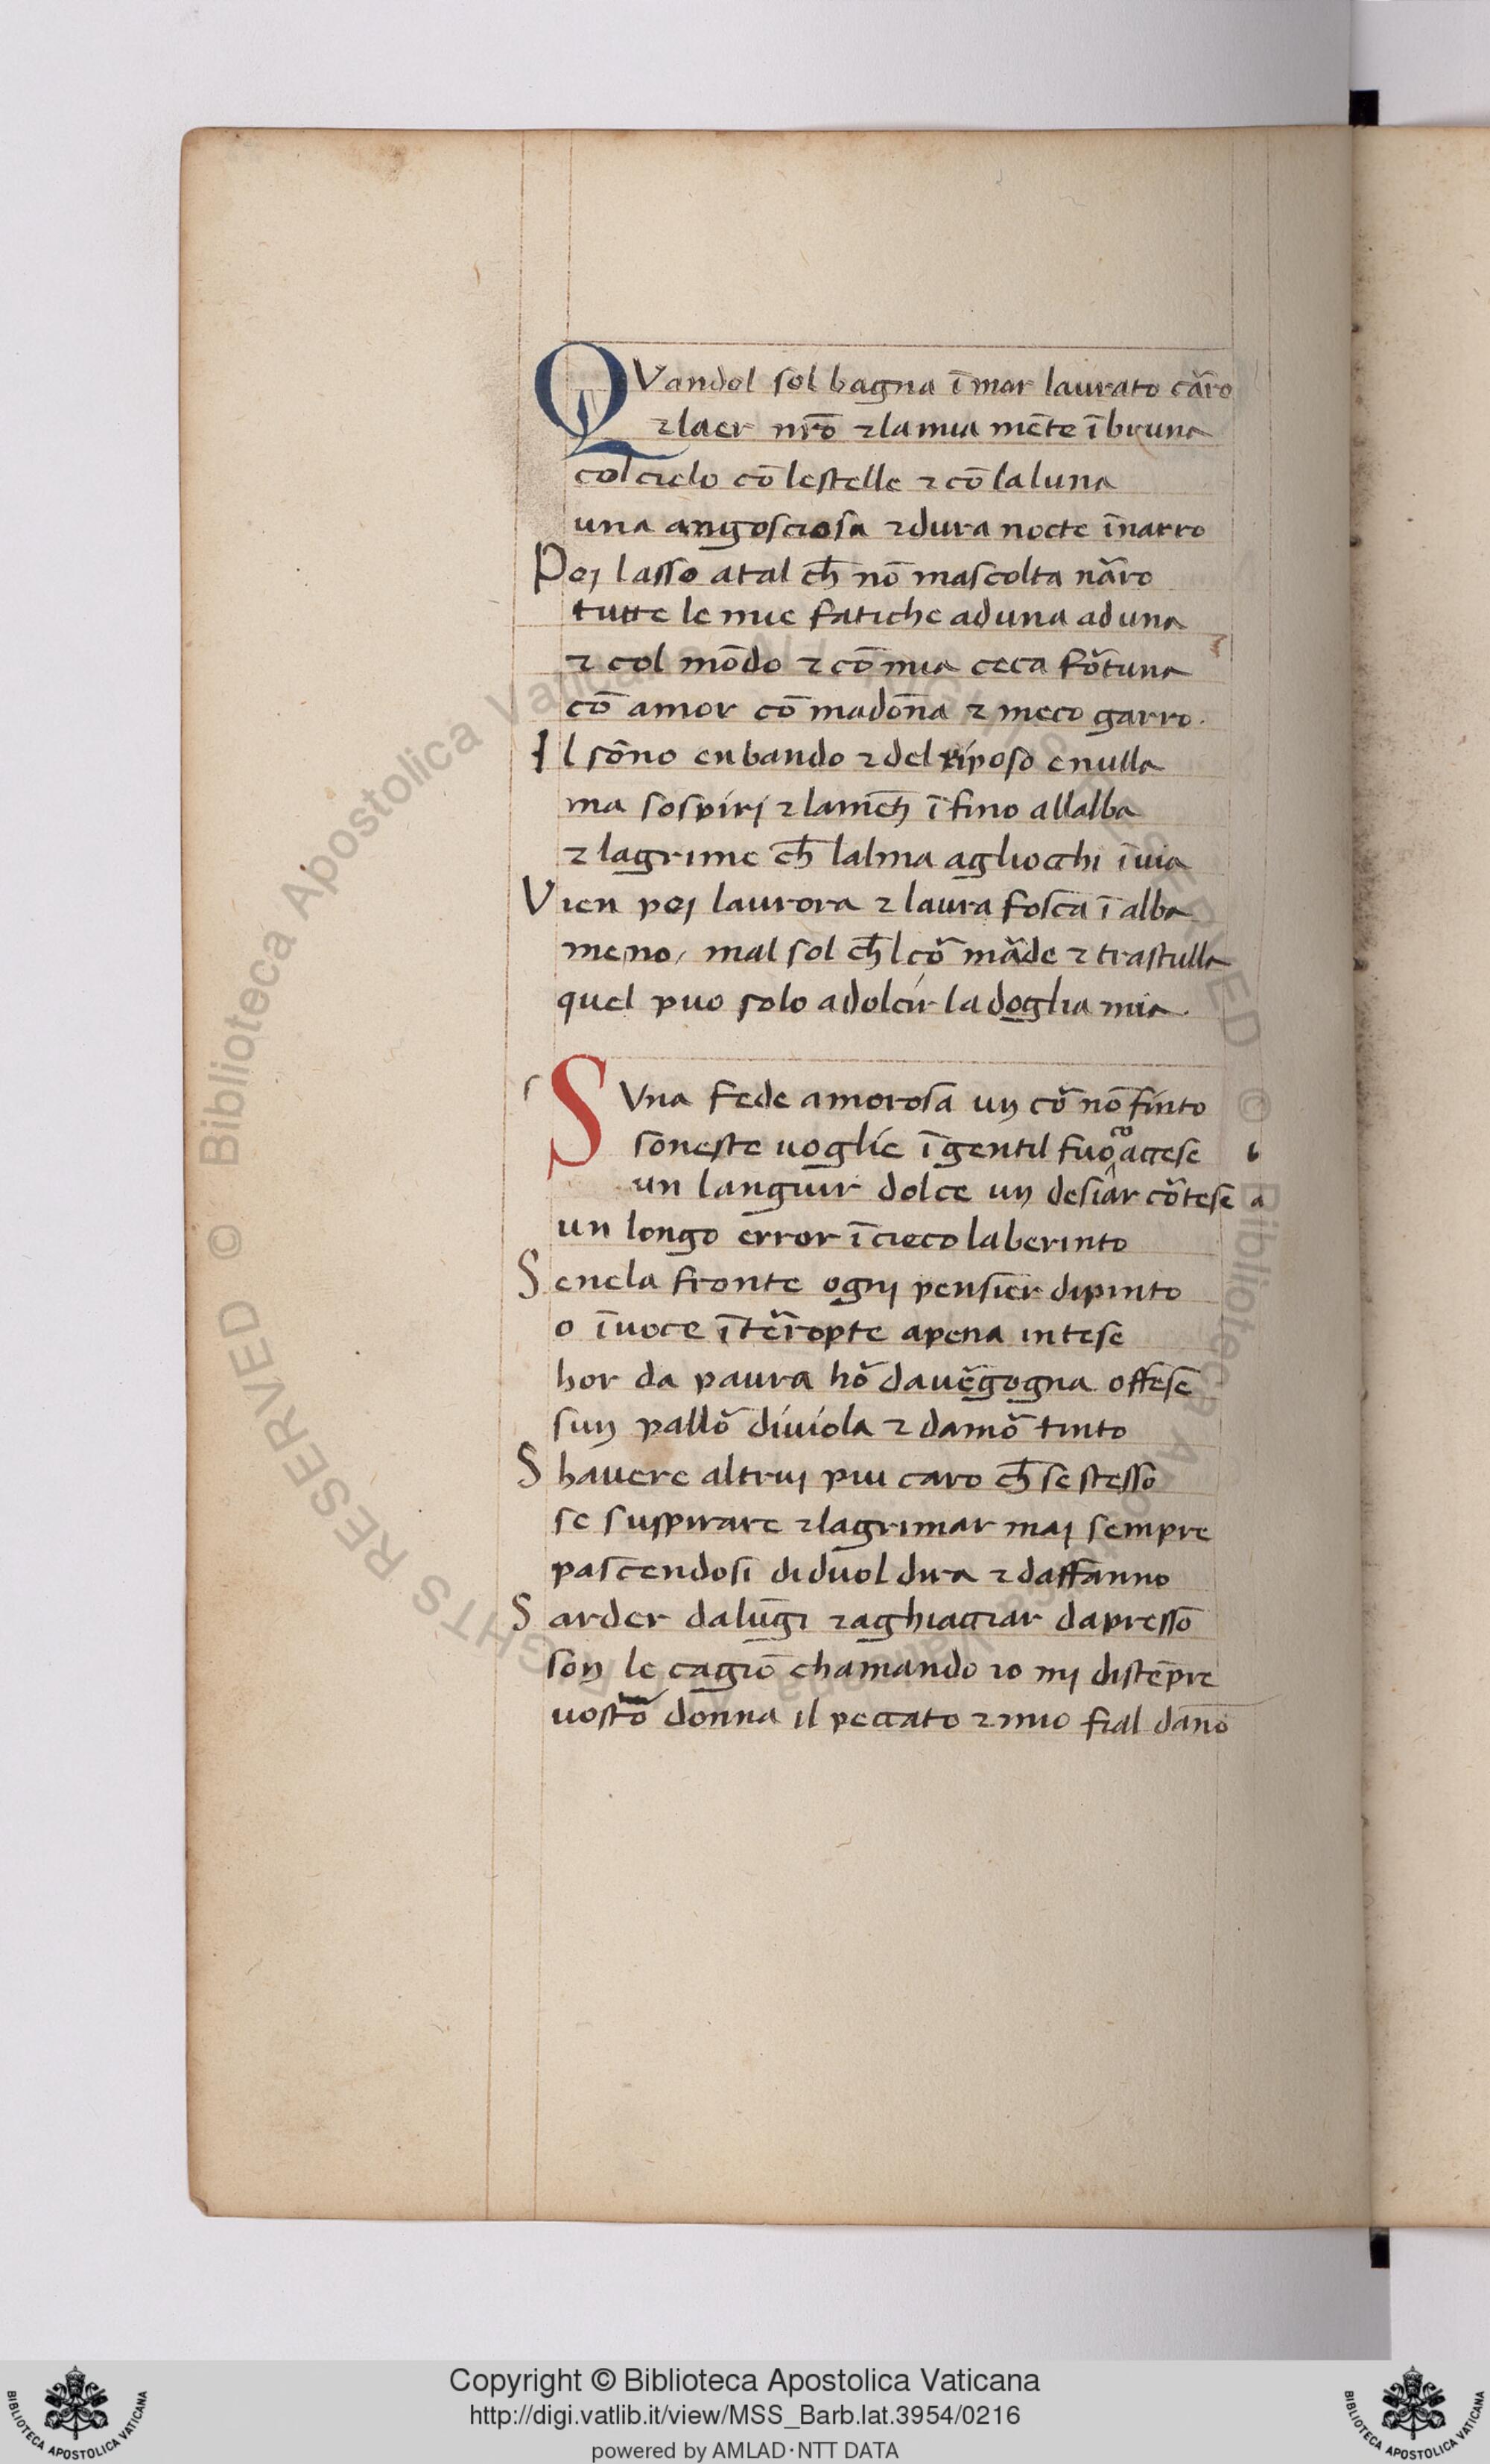 QVandol sol bagna ī mar laurato cãro
⁊ laer nr̃o ⁊ la mia mēte ībruna
col cielo cō le stelle ⁊ cō la luna
una angosciosa ⁊ dura nocte īnarro
Poj lasso a tal ch̄ nō mascolta nãro
tutte le mie fatiche aduna aduna
⁊ col mōdo ⁊ cō mia ceca fõtuna
cō amor cō madōna ⁊ meco garro.
Il sōno en bando ⁊ del riposo e nulla
ma sospirj ⁊ lamētj īfino allalba
⁊ lagrime ch̄ lalma agliocchi īuia
Vien poj laurora ⁊ laura fosca īalba
me no, mal sol ch̄l cõ mãde ⁊ trastulla
quel puo solo adolcir la doglia mia.
r
SVna fede amorosa un cõ nō finto
soneste uoglie ī gentil fuo^co accese b
un languir dolce un desiar cõtese a
un longo error ī cieco laberinto
Se nela fronte ognj pensier dipinto
o ī uoce ītẽropte apena intese
hor da paura hõ da uẽgogna offese
sun pallõ di uiola ⁊ damõ tinto
Shauere altruj piu caro ch̄ se stesso
se suspirare ⁊ lagrimar maj sempre
pascendosi di duol dira ⁊ daffanno
Sarder da lūgi ⁊ aghiacciar da presso
son le cagiō chamando io mj distēpre
uostõ donna il peccato ⁊ mio fial dāno
Copyright © Biblioteca Apostolica Vaticana
http://digi.vatlib.it/view/MSS_Barb.lat.3954/0216
powered by AMLAD·NTT DATA
BIBLIOTECA APOSTOLICA VATICANA
BIBLIOTECA APOSTOLICA VATICANA
© Biblioteca Apostolica Vaticana ALL RIGHTS RESERVED
© Biblioteca Apostolica Vaticana ALL RIGHTS RESERVED